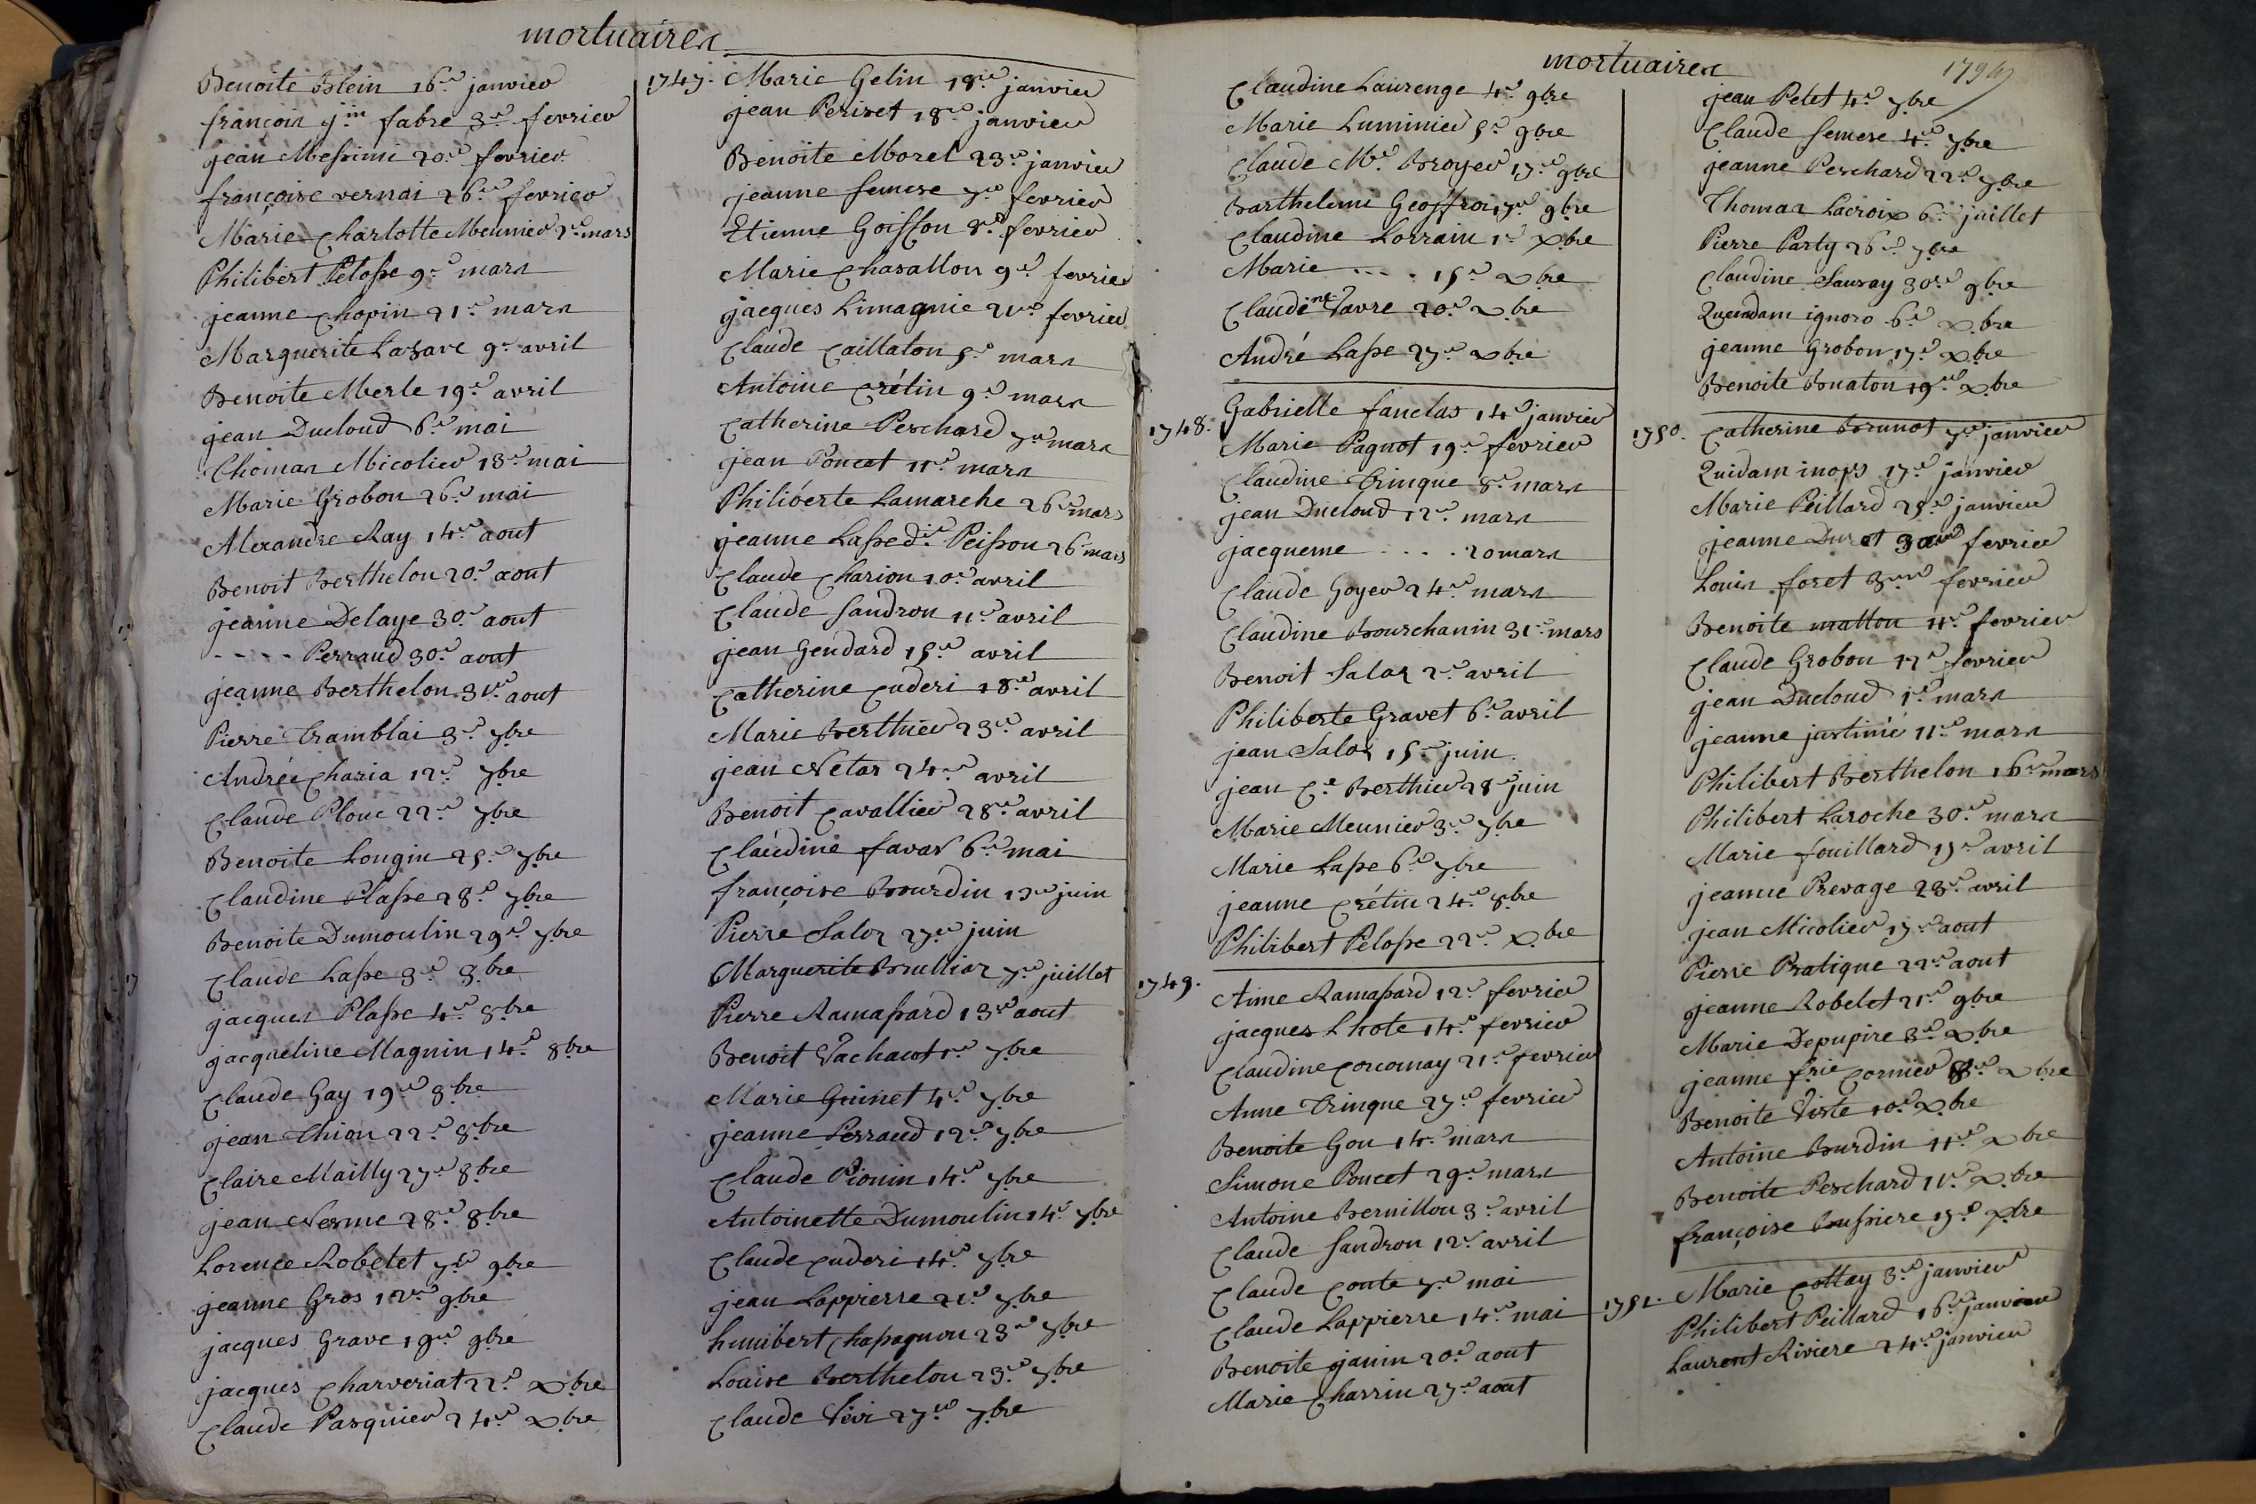 mortuaires
Benoite Blein 16e janvier
françois fabre 3e fevrier
jean Messimi 20e fevrier
françoise vernai 26e fevrier
Marie Charlotte Meunier 2e mars
Philibert Pelosse 9e mars
jeanne Chopin 21e mars
Marguerite Lazare 9e avril
Benoite Merle 19e avril
jean Ducloud 6e mai
Thomas Micolier 18e mai
Marie Grobon 26e mai
Alexandre Ray 14e aout
Benoit Berthelon 20e aout
jeanne Delaye 30e aout
- - - - Perraud 30e aout
jeanne Berthelon 31e aout
Pierre Tramblai 3e 7bre
Andrée Charia 12e 7bre
Claude Plouc 22e 7bre
Benoite Longin 25e 7bre
Claudine Plasse 28e 7bre
Benoite Dumoulin 29e 7bre
Claude Lasse 3e 8bre
jacques Plasse 4e 8bre
jacqueline Magnin 14e 8bre
Claude Gay 19e 8bre
jean Thion 22e 8bre
Claire Mailly 27e 8bre
jean Nesme 28e 8bre
Lorence Robelet 7e 9bre
jeanne Gros 12e 9bre
jacques Grave 19e 9bre
jacques Charveriat 22e Xbre
Claude Pasquier 24e Xbre
1747. Marie Gelin 18e janvier
jean Periset 18e janvier
Benoite Morel 23e janvier
jeanne Semese 7e fevrier
Etienne Goisson 8e fevrier
Marie Chasallon 9e fevrier
jacques Limagnie 21e fevrier
Claude Caillaton 5e mars
Antoine Crétin 9e mars
Catherine Perchard 7e mars
jean Poncet 11e mars
Philiberte Lamarche 26e mars
jeanne Lasse de Peisson 26e mars
Claude Charion 10e avril
Claude Sandron 11e avril
jean Gendard 15e avril
Catherine Cuderi 18e avril
Marie Berthier 23e avril
jean Netar 24e avril
Benoit Cavallier 28e avril
Claudine favar 6e mai
françoise Bourdin 13e juin
Pierre Saloz 27e juin
Marguerite Brulliar 7e juillet
Pierre Ramassard 13e aout
Benoit Vachacot 1e 7bre
Marie Guinet 4e 7bre
jeanne Perraud 12e 7bre
Claude Pionin 14e 7bre
Antoinette Dumoulin 14e 7bre
Claude Cuderi 14e 7bre
jean Lappierre 21e 7bre
humbert Chapagnon 23e 7bre
Louise Berthelon 23e 7bre
Claude Vivi 27e 7bre
mortuaires
Claudine Laurenge 4e 9bre
Marie Luminier 5e 9bre
Claude Me Broyer 17e 9bre
Barthelemi Geoffroi 17e 9bre
Claudine Lorrain 1e Xbre
Marie - - - - 15e Xbre
Claudine Favre 20e Xbre
André Lasse 27e Xbre
1748. Gabrielle fanclas 14e janvier
Marie Pagnot 19e fevrier
Claudine Trinque 8e mars
jean Ducloud 12e mars
jacqueme - - - - 20 mars
Claude Goyer 24e mars
Claudine Bourchanin 31e mars
Benoit Saloz 2e avril
Philiberte Gravet 6e avril
jean Saloz 15e juin
jean Ce Berthier 28e juin
Marie Meunier 3e 7bre
Marie Lasse 6e 7bre
jeanne Crétin 24e 8bre
Philibert Pelosse 22e Xbre
1749. Aime Ramassard 12e fevrier
jacques Lhote 14e fevrier
Claudine Corcomay 21e fevrier
Anne Trinque 27e fevrier
Benoite Gon 14e mars
Simone Poncet 29e mars
Antoine Bernillon 3e avril
Claude Sandron 12e avril
Claude Conte 7e mai
Claude Lappierre 14e mai
Benoite janin 20e aout
Marie Charrin 27e aout
jean Petet 4e 7bre
Claude Semese 4e 7bre
jeanne Perchard 22e 7bre
Thomas Lacroix 6e juillet
Pierre Party 26e 7bre
Claudine Sauzay 30e 9bre
Quendam ignoro 6e Xbre
jeanne Grobon 17e Xbre
Benoite Buaton 19e Xbre
1750. Catherine Brunot 7e janvier
Quidam inops 17e janvier
Marie Peillard 25e janvier
jeanne Duret fevrier
Louis foret 3e fevrier
Benoite matton 11e fevrier
Claude Grobon 12e fevrier
jean Ducloud 1e mars
jeanne justinié 11e mars
Philibert Berthelon 16e mars
Philibert Laroche 30e mars
Marie fouillard 15e avril
jeanne Prevage 28e avril
jean Micolier 17e aout
Pierre Pratique 22e aout
jeanne Robelet 21e 9bre
Marie Depupire 3e Xbre
jeanne frie Cornier 8e Xbre
Benoite Viste 10e Xbre
Antoine Burdin 11e Xbre
Benoite Perchard 11e Xbre
françoise Bussiere 17e Xbre
1751. Marie Cottay 3e janvier
Philibert Peillard 16e janvier
Laurent Riviere 24e janvier